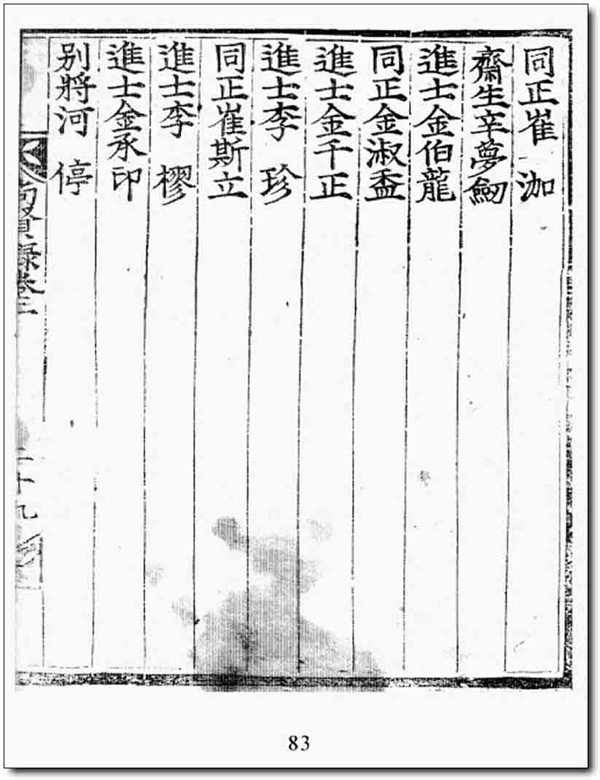 同正崔 泇
齋生辛夢劒
進士金伯龍
同正金淑盃
進士金千正
進士李 珍
同正崔斯立
進士李 樛
進士金承印
別將河 停
尚賢錄卷三
二十九
83